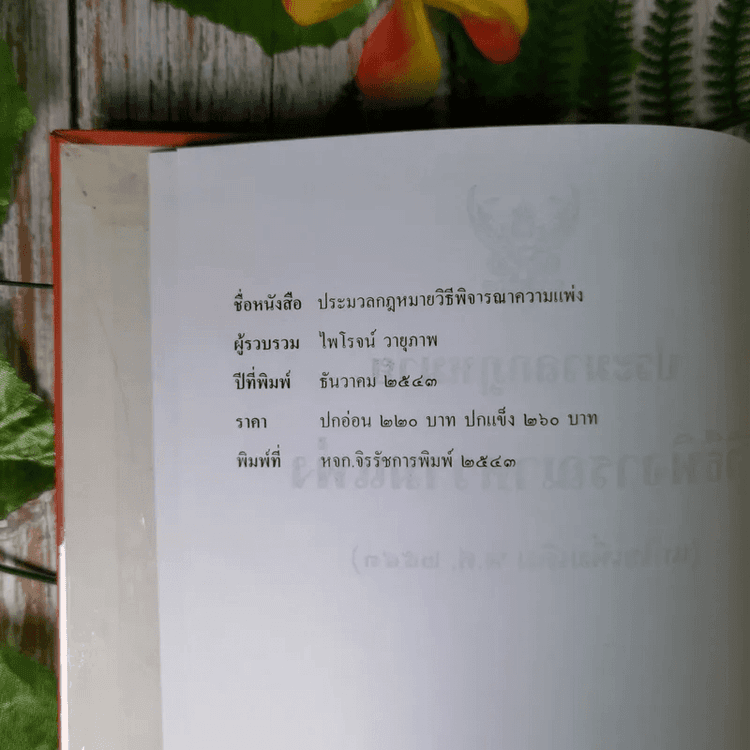 ชื่อหนังสือ ประมวลกฎหมายวิธีพิจารณาความแพ่ง
ผู้รวบรวม ไพโรจน์ วายุภาพ
ปีที่พิมพ์ ธันวาคม ๒๕๔๓
ราคา ปกอ่อน ๒๒๐ บาท ปกแข็ง ๒๖๐ บาท
พิมพ์ที่ หจก.จิรรัชการพิมพ์ ๒๕๔๓